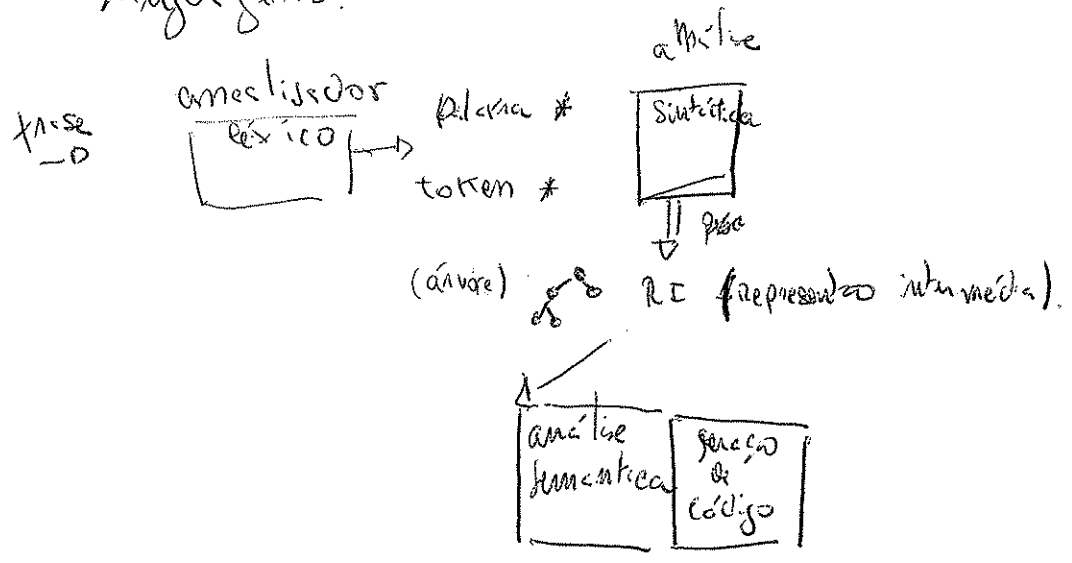 frase
analisador
léxico
palavra *
token *
análise
Sintática
(árvore)
RI (representação intermédia).
análise
semântica
geração
de
código